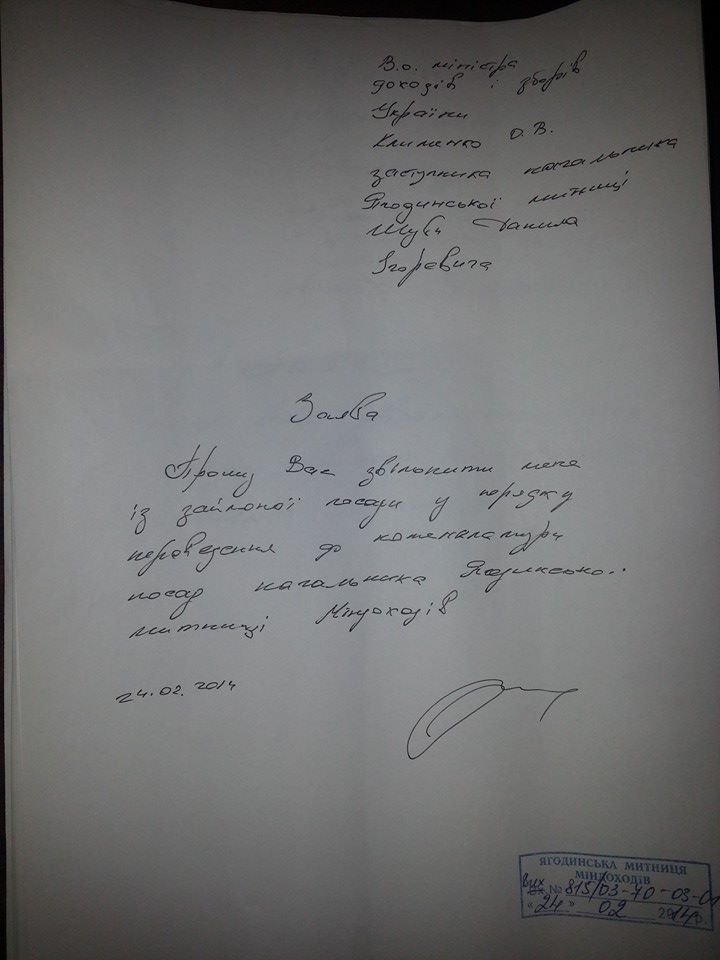 В.о. міністра
доходів і зборів
України
Клименко О.В.
заступника начальника
Ягодинської митниці
Шуби Данила
Ігоревича
Заява
Прошу Вас звільнити мене
із займаної посади у порядку
переведення до номенклатури
посад начальника Ягодинської
митниці Міндоходів
24.02.2014
ЯГОДИНСЬКА МИТНИЦЯ
МІНДОХОДІВ
Вих № 815/03-70-03-01
"24" 02 2014р.